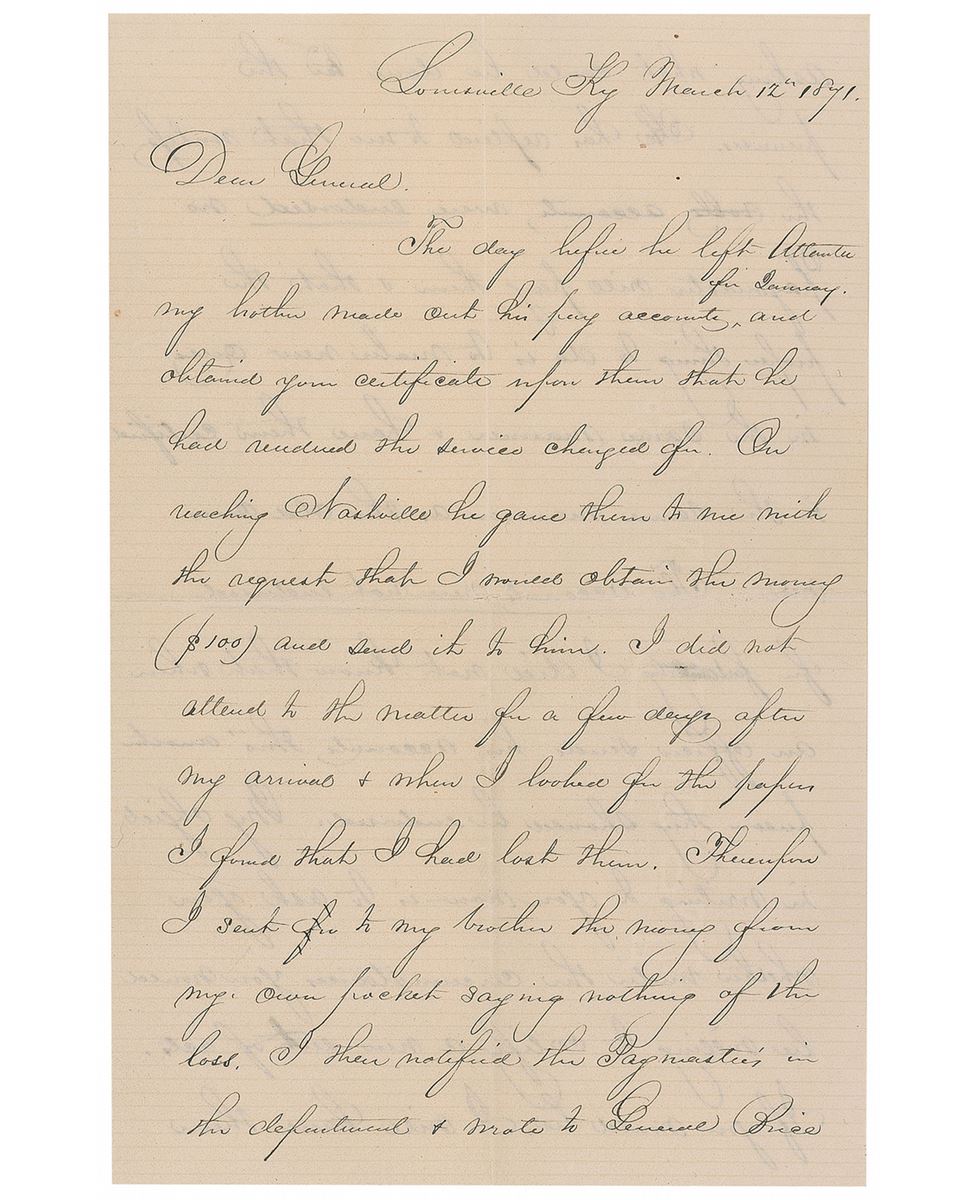 Louisville Ky March 12th 1871.
Dear General.
The day before he left Atlanta
for January.
my brother made out his pay accounts, and
obtained your certificate upon them that he
had rendered the service charged for. On
reaching Nashville he gave them to me with
the request that I would obtain the money
($100) and send it to him. I did not
attend to the matter for a few days after
my arrival & when I looked for the papers
I found that I had lost them. Therefore
I sent to my brother the money from
my own pocket saying nothing of the
loss. I then notified the Paymasters in
the department & wrote to General Brice